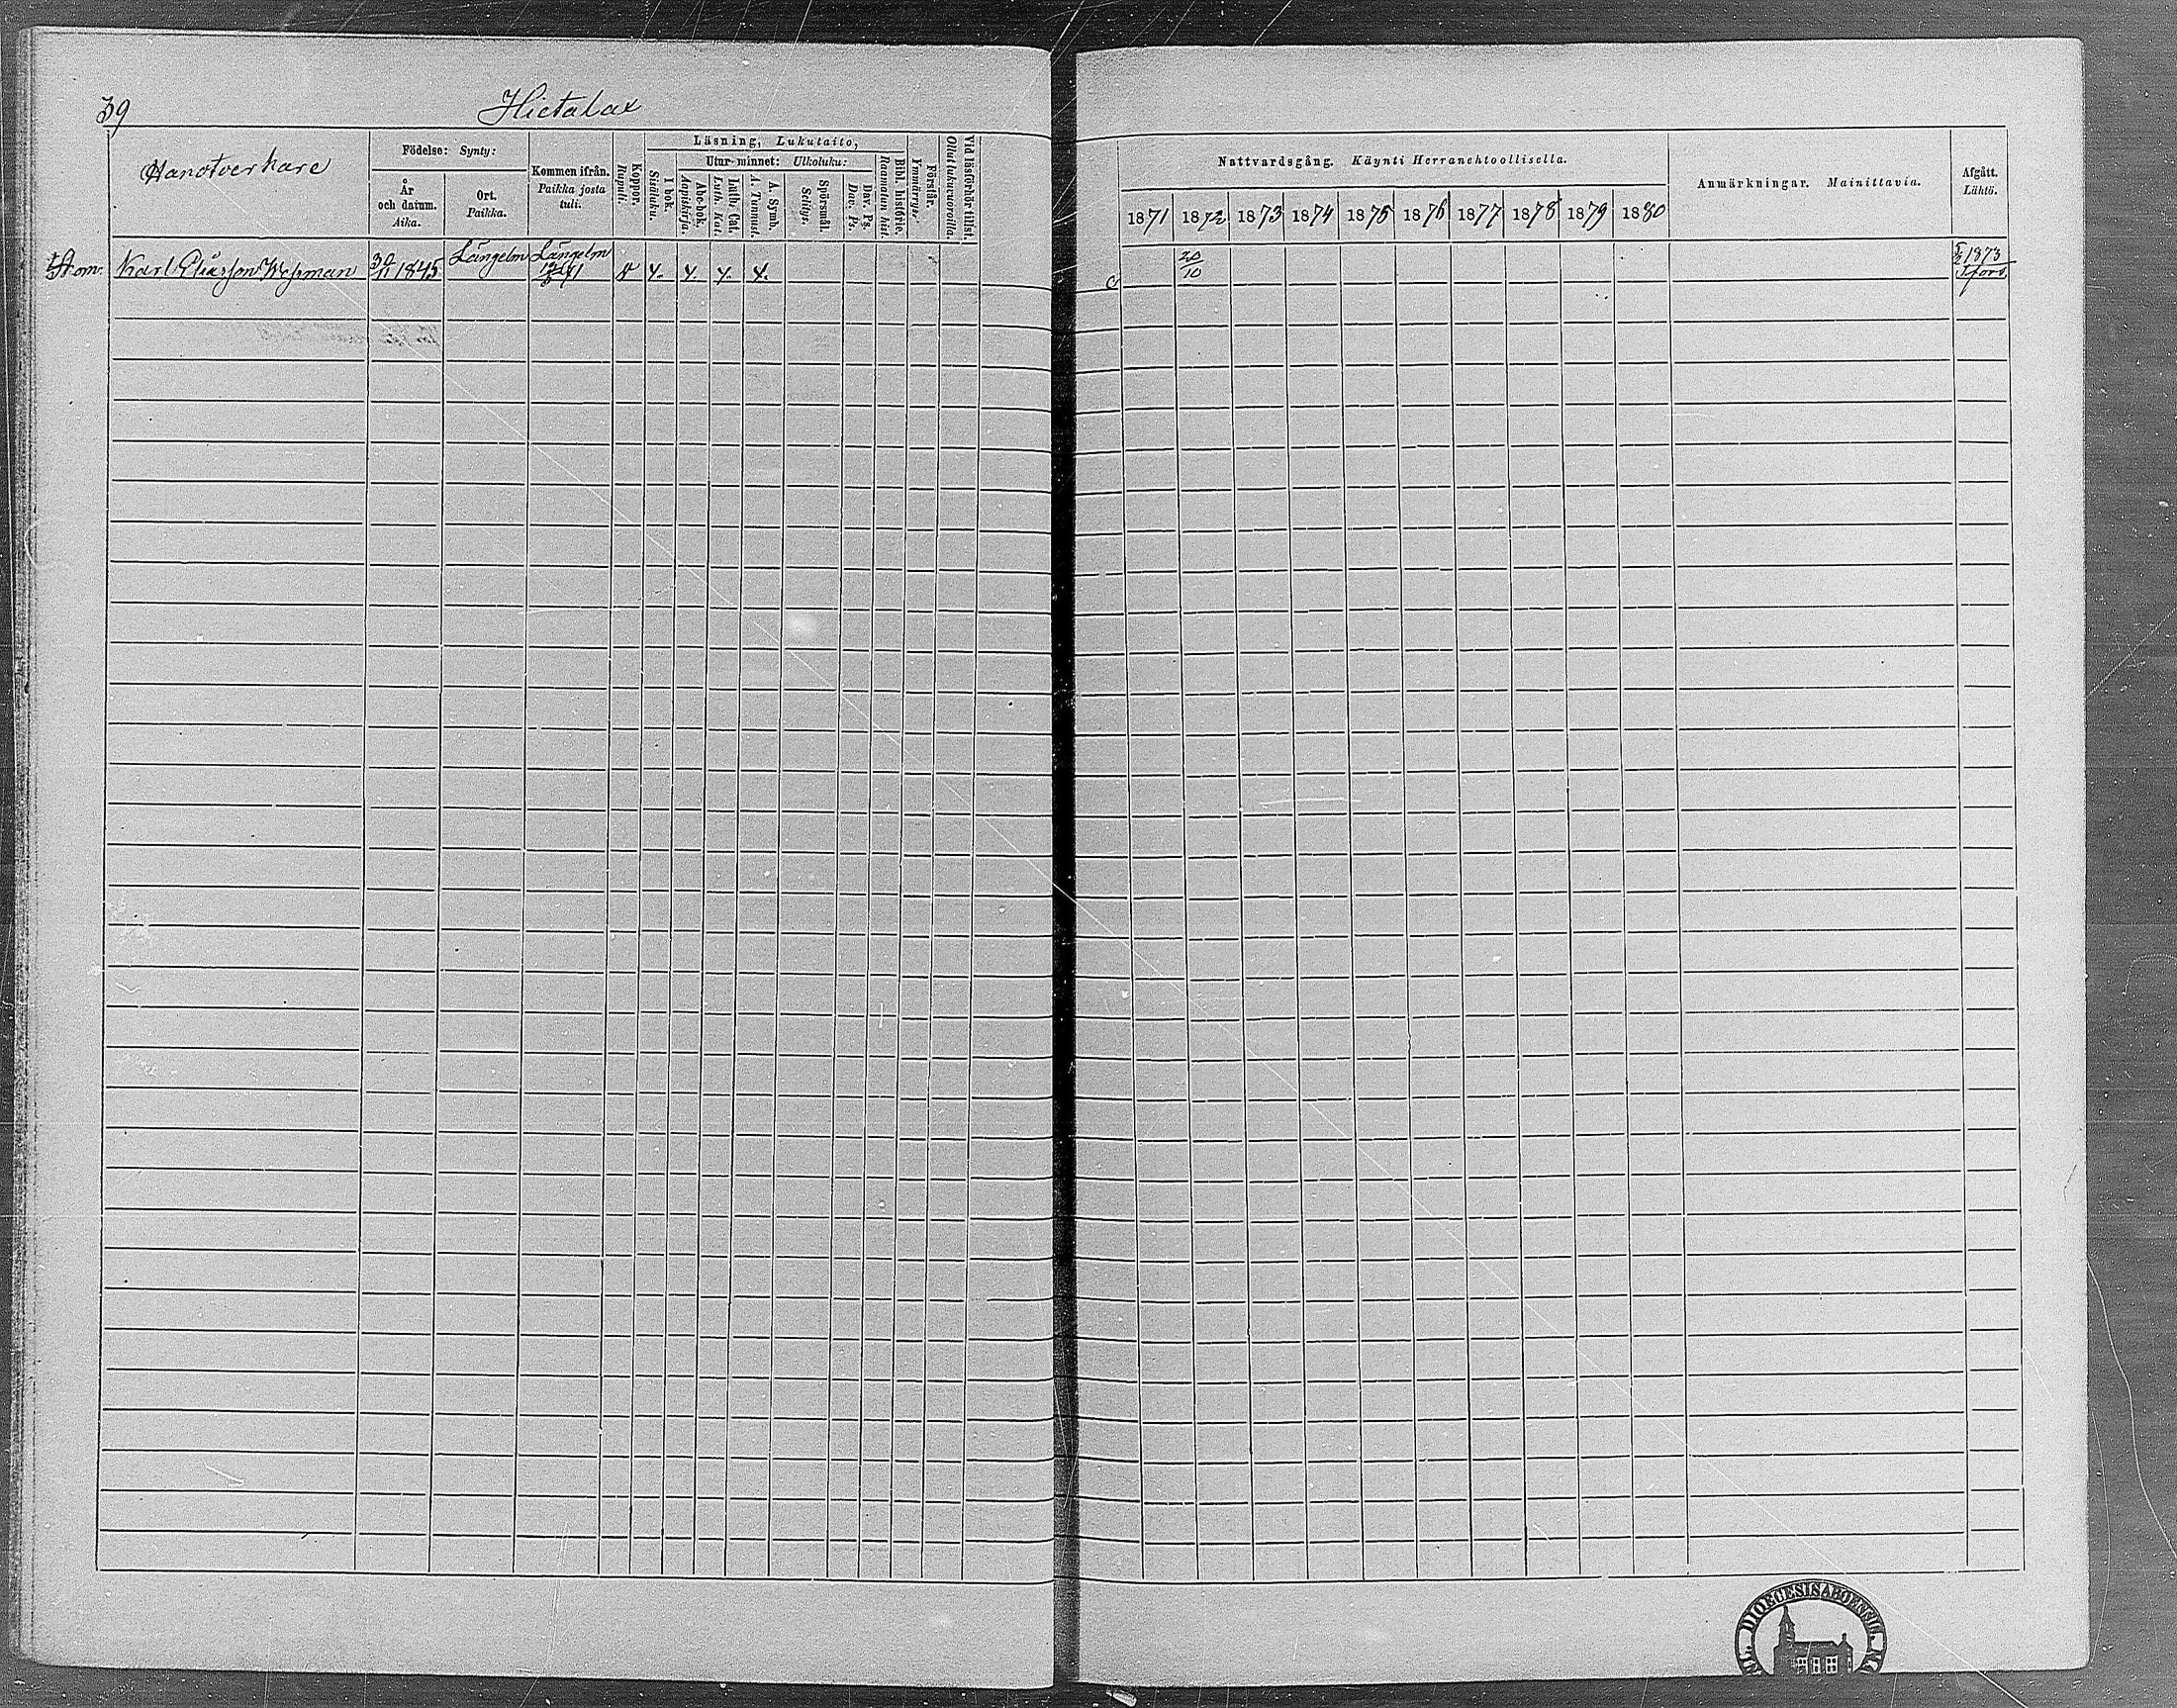 39
Hietalax
Handtverkare
Födelse: Synty:
År och datum. Aika.
Ort. Paikka.
Kommen ifrån. Paikka josta tuli.
Koppor. Rupuli.
Läsning, Lukutaito,
I bok. Sisäluku.
Utur minnet: Ulkoluku:
Abc-bok. Aapiskirja.
Luth. Cat. Luth. Kat.
A. Symb. A. Tunnust.
Spörsmål. Selitys.
Dav. Ps. Dav. Ps.
Bibl. historie. Raamatun hist.
Förstår. Ymmärrys.
Vid läsförhör tillst. Ollut lukuvuorolla.
Nattvardsgång. Käynti Herranehtoollisella.
1871 1872 1873 1874 1875 1876 1877 1878 1879 1880
Anmärkningar. Mainittavia.
Afgått. Lähtö.
Karl Eliasson 30/11 1845 Längelm Längelm
20/10
1873
DIOECESIS ABOENSIS